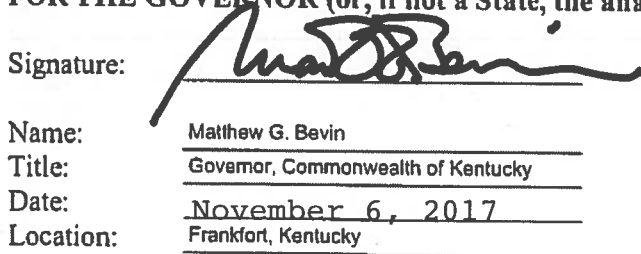 FOR THE GOVERNOR (or, if not a State, the
Signature: Matt G Bevin
Name: Matthew G. Bevin
Title: Governor, Commonwealth of Kentucky
Date: November 6, 2017
Location: Frankfort, Kentucky